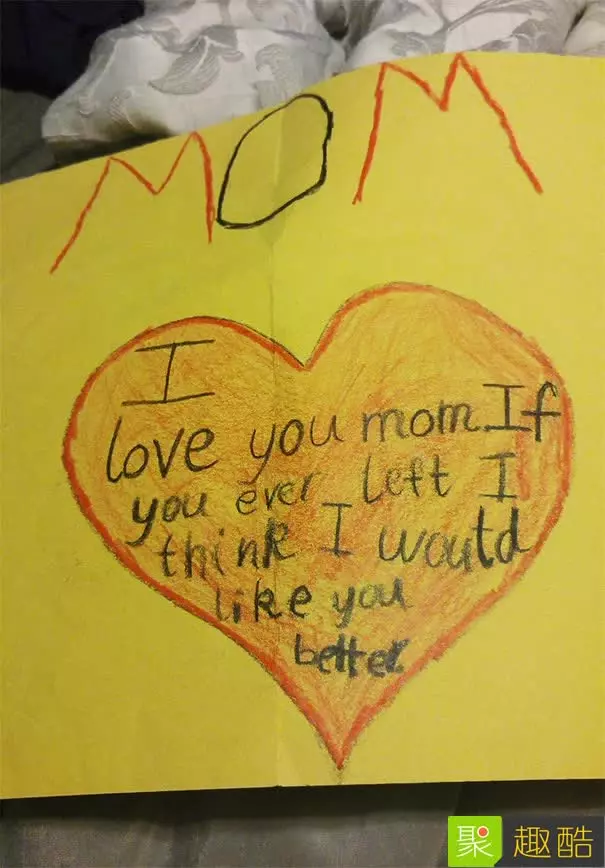 MOM
I
love you mom. If
you ever left I
think I would
like you
better.
聚 趣酷